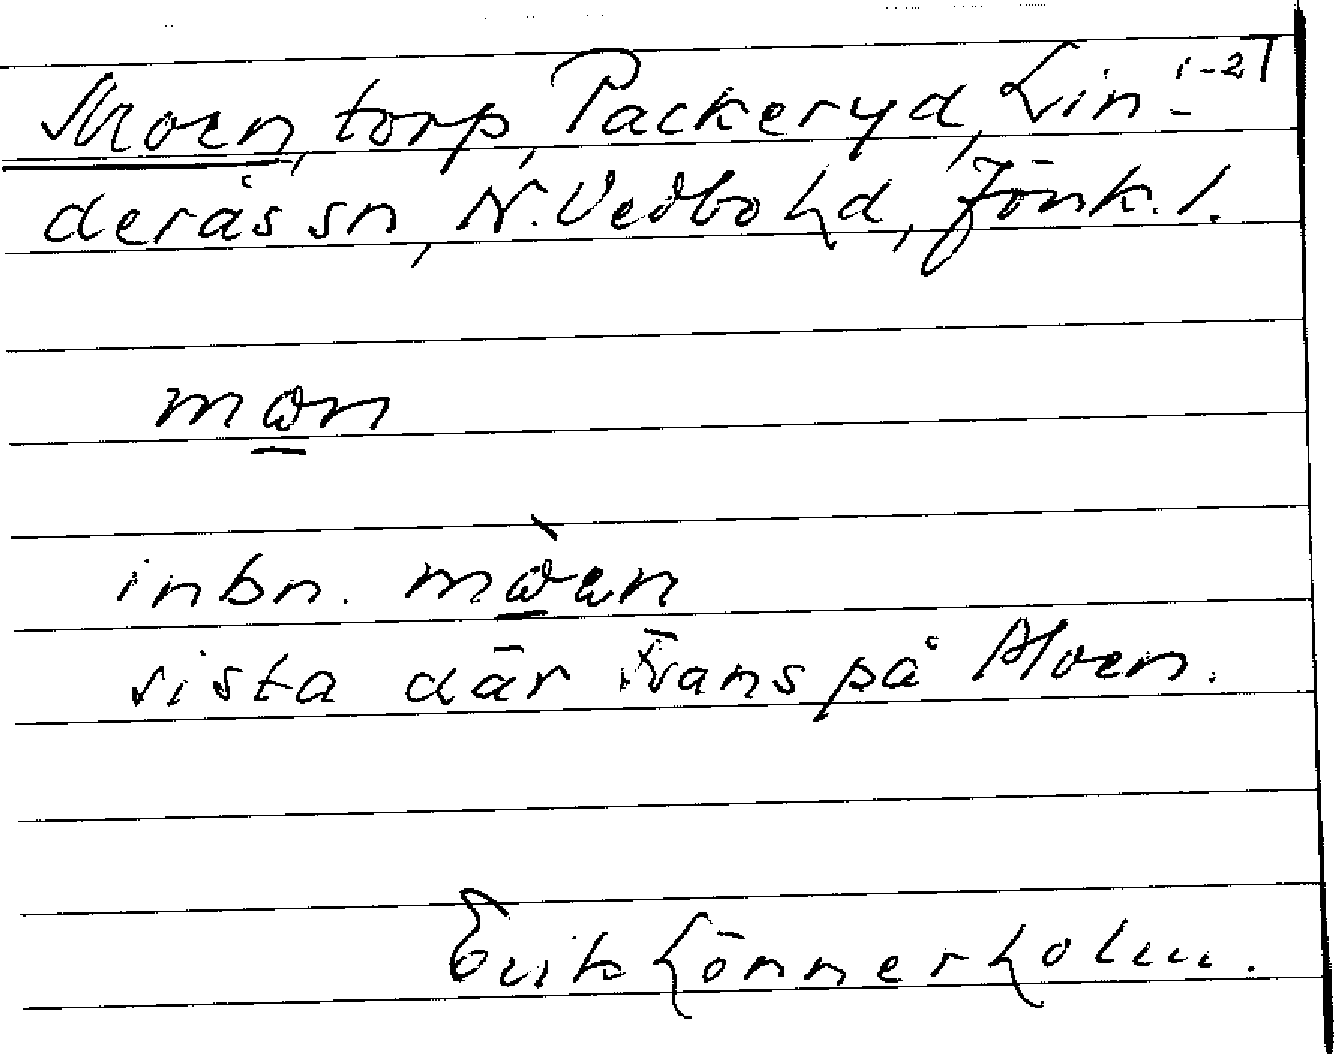 Moen, torp, Packeryd, Lin- 1-21
derås sn, N. Vedbo hd, Jönk. l.
mωn
inbn. mὼen
sista där Frans på Moen.
Erik Lönnerholm.